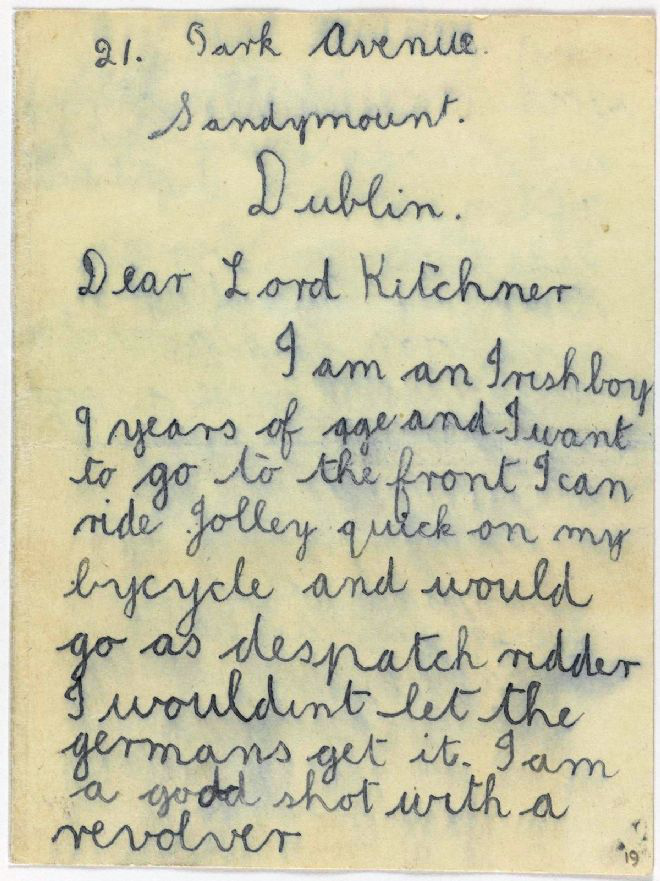 21. Park Avenue.
Sandymount.
Dublin.
Dear Lord Kitchner
I am an Irish boy
9 years of age and I want
to go to the front I can
ride Jolley quick on my
bycycle and would
go as despatch ridder
I wouldint let the
germans get it. I am
a good shot with a
revolver
19